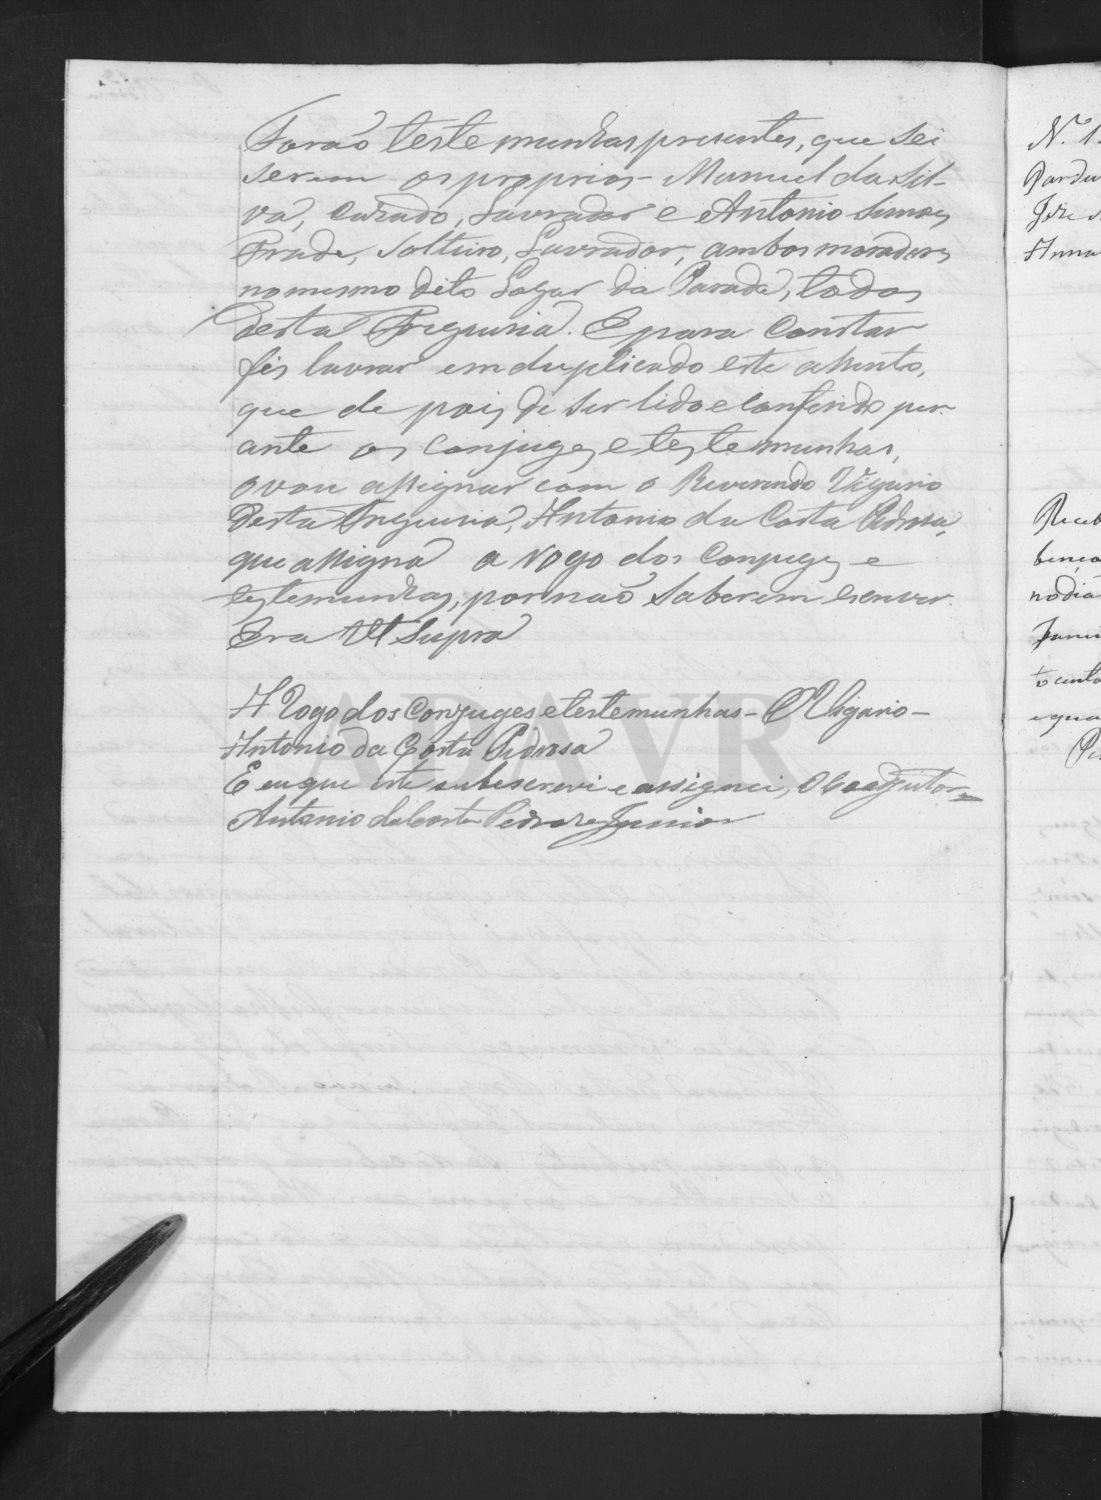 Forão testemunhas presentes, que sei
serem os proprios - Manuel da Sil-
va, Cazado, Lavrador e Antonio Simoes
Frade, Solteiro, Lavrador, ambos moradores
no mesmo dito Logar da Parada, todos
desta Freguesia. E para Constar
fis lavrar em duplicado este assento,
que de pois de ser lido e conferido per-
ante os Conjuges e testemunhas,
o vou assignar com o Reverendo Vigario
desta Freguesia, Antonio da Costa Pedrosa,
que assigna a rogo dos Conjuges e
testemunhas, por não saberem escrever.
Era Ut Supra
A Rogo dos Conjuges e testemunhas - O Vigario -
Antonio da Costa Pedrosa
E eu que este subescrevi e assignei, O Coadjutor =
Antonio da Costa Pedrosa Junior
ADAVR
N.º 1
Anna
Receb
bença
no dia